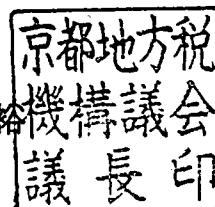 京都地方税
機構議会
議長印